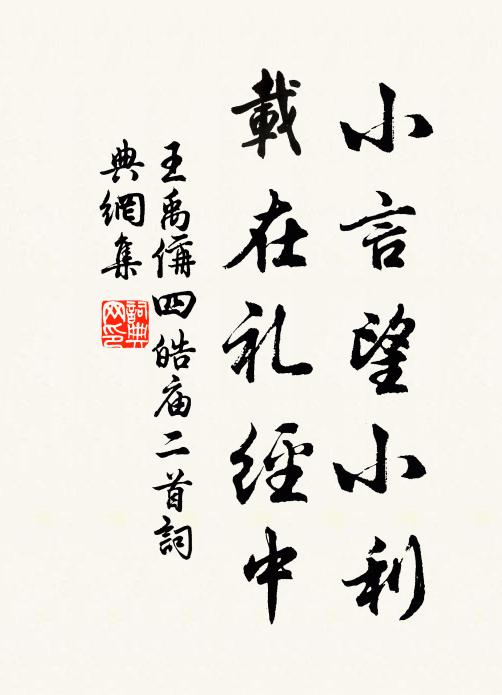 小言望小利
載在礼經中
王禹偁四皓庙二首詞
典網集
詞典
网印